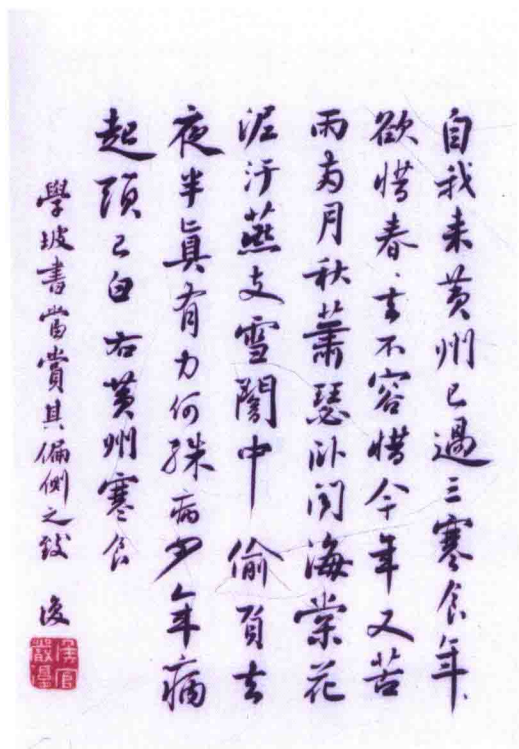 自我来黄州已過三寒食年、
欲惜春、去不容惜今年又苦
雨兩月秋蕭瑟卧聞海棠花
泥汙燕支雪闇中偷負去
夜半眞有力何殊病少年病
起頭已白右黄州寒食
學坡書當賞其偏側之致 復
侯官嚴復